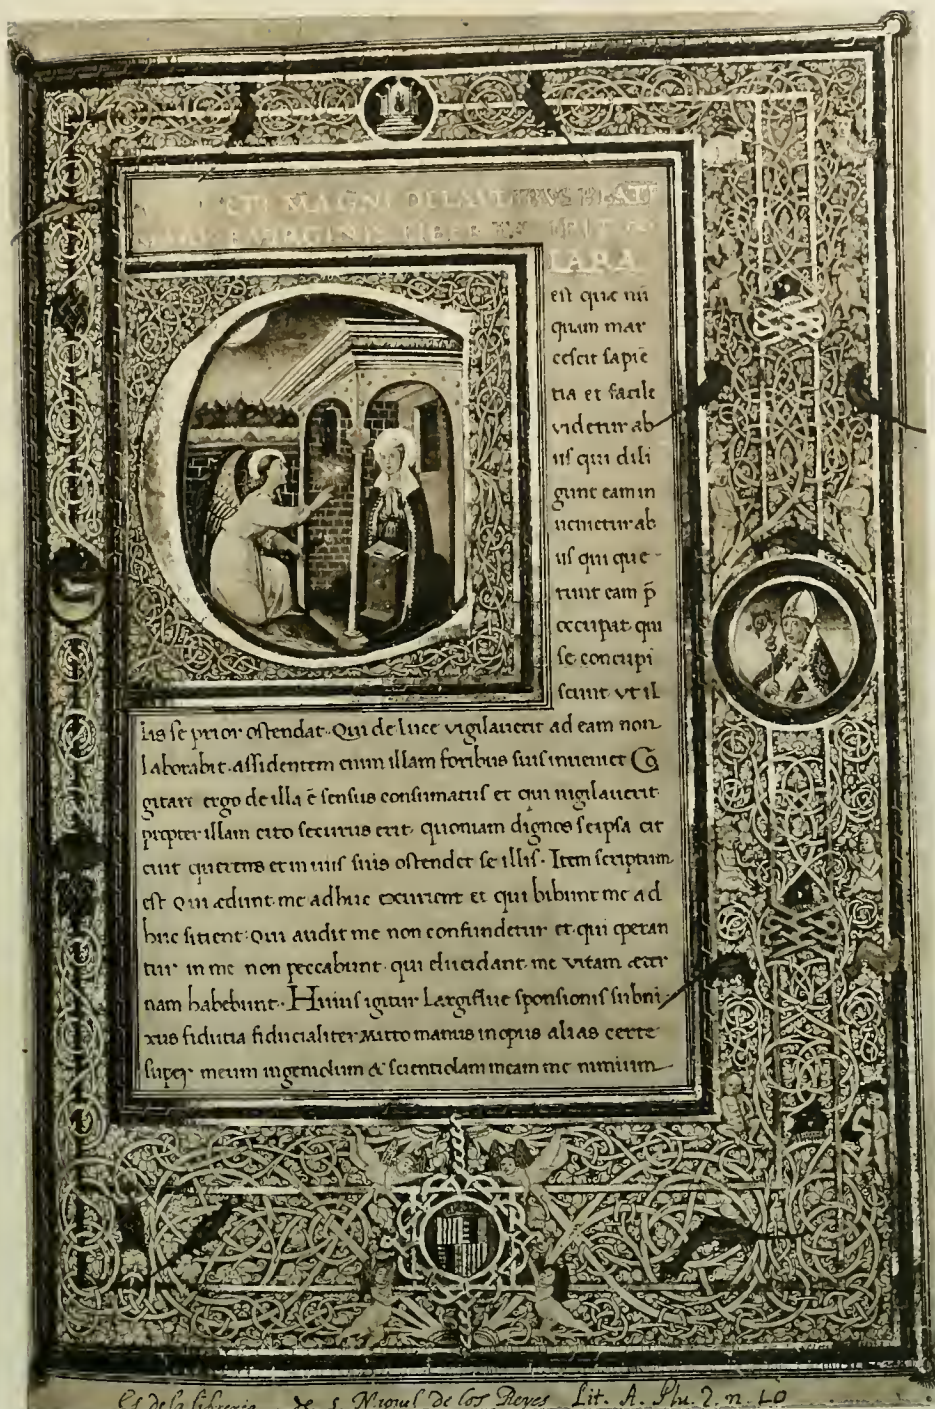 MAGNI DE LAVDIBVS BEATI
VIRGINIS LIBER
LARA
est quæ nū
quam mar
cescit sapiē
tia et facile
videtur ab
iis qui dili
gunt eam in
uenietur ab
iis qui que-
runt eam p̄
occupat qui
se concupi
scunt vt il
lis se prior ostendat. Qui de luce vigilauerit ad eam non
laborabit. assidentem enim illam foribus suis inueniet Co
gitari ergo de illa ē sensus consumatus et qui uigilauerit
propter illam cito securus erit. quoniam dignos se ipsa cir
cuit querens et in uiis suis ostendet se illis. Item scriptum
est Qui ædunt me adhuc exurient et qui bibunt me ad
huc sitient. Qui audit me non confundetur et qui operan
tur in me non peccabunt. qui elucidant me vitam æter
nam habebunt. Huius igitur largiflue sponsionis subni
xus fidutia fiducialiter mitto manus in opus alias certe
super meum ingeniolum & scientiolam meam me nimium
Es de la libreria de S. Miguel de los Reyes Lit. A. Plu. 2. n. 10